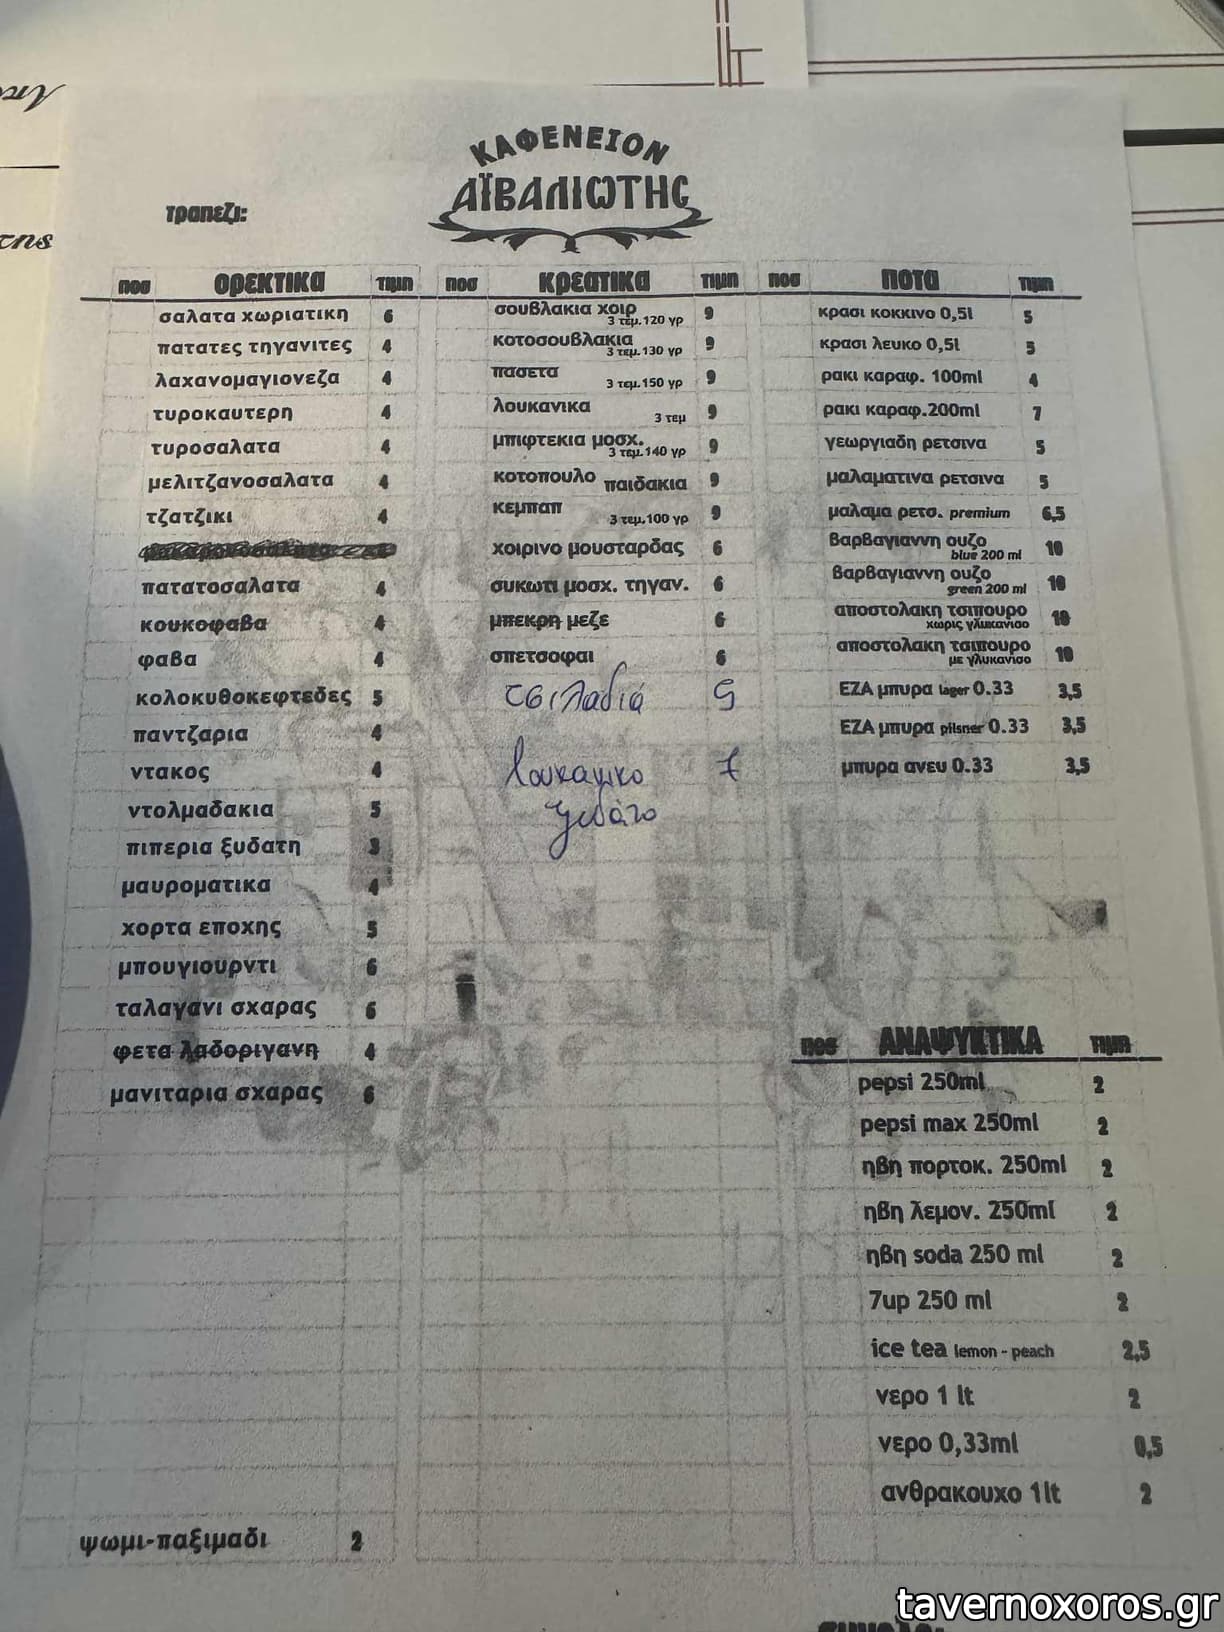 ΚΑΦΕΝΕΙΟΝ
ΑΪΒΑΛΙΩΤΗΣ
τραπεζι:
ποσ ΟΡΕΚΤΙΚΑ τιμη
σαλατα χωριατικη 6
πατατες τηγανιτες 4
λαχανομαγιονεζα 4
τυροκαυτερη 4
τυροσαλατα 4
μελιτζανοσαλατα 4
τζατζικι 4
πατατοσαλατα 4
κουκοφαβα 4
φαβα 4
κολοκυθοκεφτεδες 5
παντζαρια 4
ντακος 4
ντολμαδακια 5
πιπερια ξυδατη 3
μαυροματικα 4
χορτα εποχης 5
μπουγιουρντι 6
ταλαγανι σχαρας 6
φετα λαδοριγανη 4
μανιταρια σχαρας 6
ψωμι-παξιμαδι 2
ποσ ΚΡΕΑΤΙΚΑ τιμη
σουβλακια χοιρ 9
3 τεμ.120 γρ
κοτοσουβλακια 9
3 τεμ.130 γρ
πασετα 9
3 τεμ.150 γρ
λουκανικα 9
3 τεμ
μπιφτεκια μοσχ. 9
3 τεμ.140 γρ
κοτοπουλο παιδακια 9
κεμπαπ 9
3 τεμ.100 γρ
χοιρινο μουσταρδας 6
συκωτι μοσχ. τηγαν. 6
μπεκρη μεζε 6
σπετσοφαι 6
τσιλαδιά
λουκανικο 7
ξυδάτο
ποσ ΠΟΤΑ τιμη
κρασι κοκκινο 0,5l 5
κρασι λευκο 0,5l 5
ρακι καραφ. 100ml 4
ρακι καραφ.200ml 7
γεωργιαδη ρετσινα 5
μαλαματινα ρετσινα 5
μαλαμα ρετσ. premium 6,5
βαρβαγιαννη ουζο 10
blue 200 ml
βαρβαγιαννη ουζο 10
green 200 ml
αποστολακη τσιπουρο 10
χωρις γλυκανισο
αποστολακη τσιπουρο 10
με γλυκανισο
ΕΖΑ μπυρα lager 0.33 3,5
ΕΖΑ μπυρα pilsner 0.33 3,5
μπυρα ανευ 0.33 3,5
ποσ ΑΝΑΨΥΚΤΙΚΑ τιμη
pepsi 250ml 2
pepsi max 250ml 2
ηβη πορτοκ. 250ml 2
ηβη λεμον. 250ml 2
ηβη soda 250 ml 2
7up 250 ml 2
ice tea lemon - peach 2,5
νερο 1 lt 2
νερο 0,33ml 0,5
ανθρακουχο 1lt 2
tavernoxoros.gr